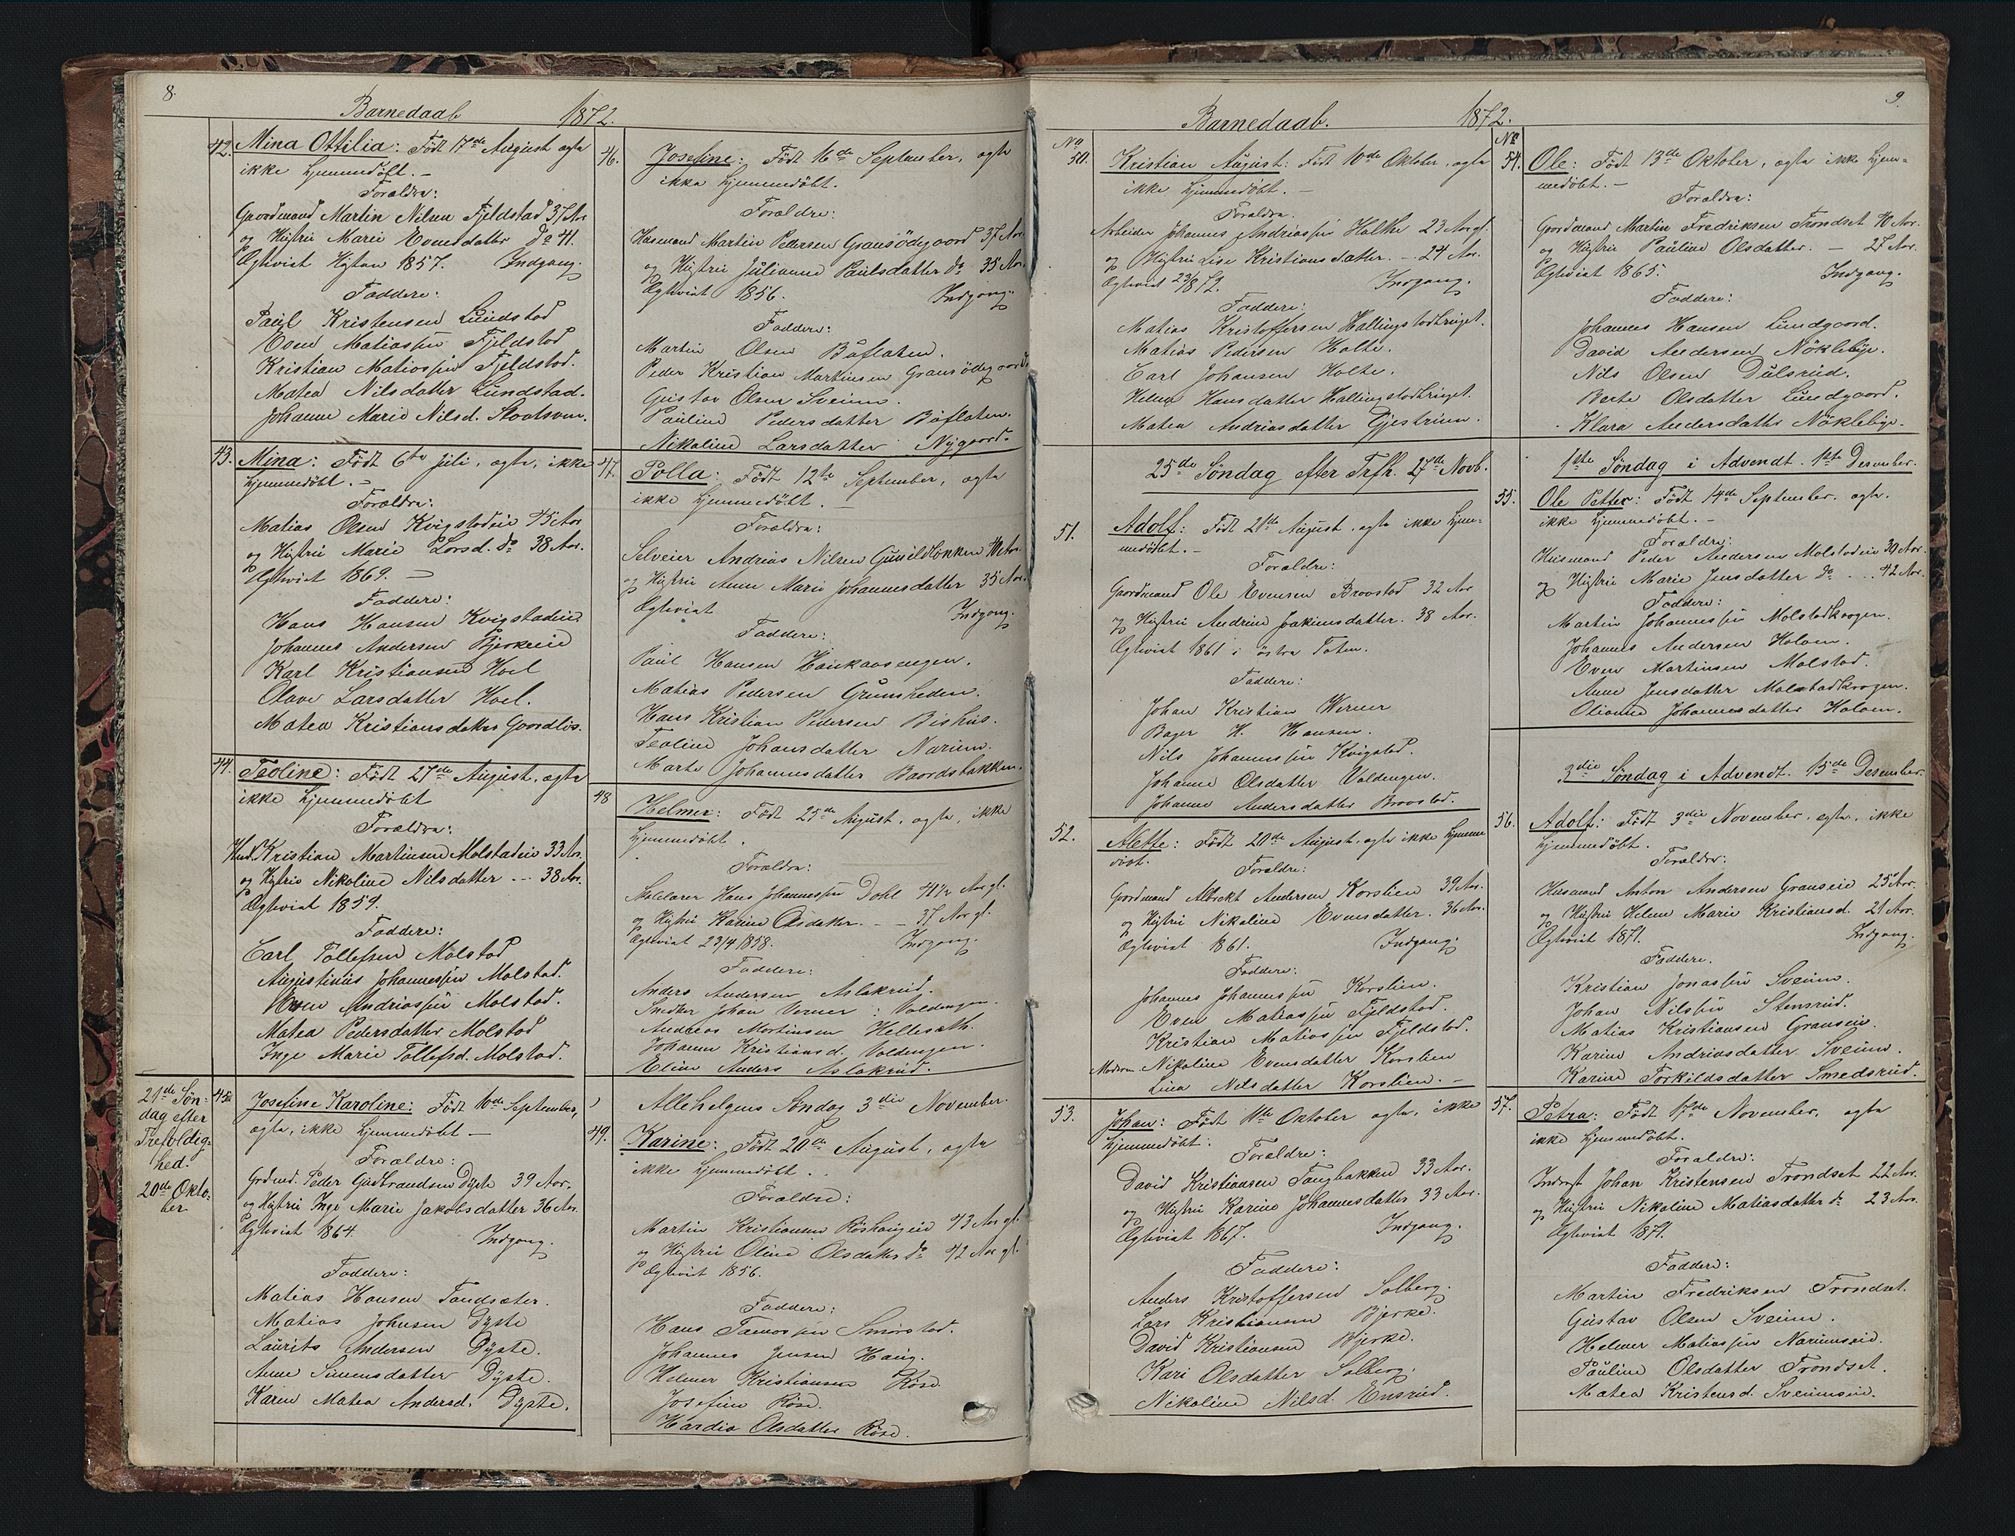 8.
Barnedaab 1872.
42. Mina Ottilia: Født 17de August ægte
ikke hjemmedøbt. —
Forældre:
Gaardmand Martin Nilsen Fjeldstad 37 Aar
og Hustru Marie Evensdatter Do 41.
Ægteviet Høsten 1857. Indgang.
Faddere:
Paul Kristensen Lundstad
Even Matiassen Fjeldstad
Kristian Matiassen Fjeldstad.
Matea Nilsdatter Lundstad.
Johanne Marie Nilsd. Staatsven.
43. Mina: Født 6te Juli, ægte, ikke
hjemmedøbt. —
Forældre:
Matias Olsen Kvigstadeie 45 Aar
og Hustru Marie Larsd. Do 38 Aar.
Ægteviet 1869. —
Faddere:
Hans Hansen Kvigstadeie
Johannes Andersen Bjerkeeie
Karl Kristiansen Hoel
Olave Larsdatter Hoel.
Matea Kristiansdatter Gaardløs.
44. Teoline: Født 27de August, ægte
ikke hjemmedøbt
Forældre:
Husd. Kristian Martinsen Molstadeie 33 Aar.
og Hustru Nikoline Nilsdatter -- 38 Aar.
Ægteviet 1859.
Faddere:
Carl Tollefsen Molstad
Augustinus Johannessen Molstad.
Even Andriassen Molstad.
Matea Pedersdatter Molstad
Inge Marie Tollefsd. Molstad.
21de Søn-
dag efter
Trefoldig-
hed.
20de Okto-
ber
45. Josefine Karoline: Født 16de September,
ægte, ikke hjemmedøbt —
Forældre:
Grdmd. Peder Gudbrandsen Dyste 39 Aar.
og Hustru Inge Marie Jakobsdatter 36 Aar.
Ægteviet 1864. Indgang.
Faddere:
Matias Hansen Tandsæter.
Matias Johnsen Dyste
Laurits Andersen Dyste.
Anne Simensdatter Dyste.
Karen Matea Andersd. Dyste.
46. Josefine: Født 16de September, ægte
ikke hjemmedøbt.
Forældre:
Husmand Martin Pedersen Gransødegaard 37 Aar
og Hustru Julianne Paulsdatter Do 35 Aar.
Ægteviet 1856. Indgang.
Faddere:
Martin Olsen Bøflaten.
Peder Kristian Martinsen Gransødegaard
Gustav Olsen Sveum.
Pauline Pedersdatter Bøflaten.
Nikoline Larsdatter Nygaard.
47. Polla: Født 12te September, ægte
ikke hjemmedøbt. —
Forældre:
Selveier Andrias Nilsen Gunildbakken 41 Aar.
og Hustru Anne Marie Johannesdatter 35 Aar.
Ægteviet Indgang.
Faddere:
Paul Hansen Haukaasengen.
Matias Pedersen Grimsheden.
Hans Kristian Pedersen Bishus.
Teoline Johansdatter Narum.
Marte Johannesdatter Baardsbakken.
48 Helmer: Født 25de August, ægte, ikke
hjemmedøbt.
Forældre:
Skolelærer Hans Johannessen Dahl 41½ Aar gl.
og Hustru Karine Olsdatter. — 37 Aar gl.
Ægteviet 23/4 1858. Indgang.
Faddere:
Anders Andersen Aslakrud.
Snedker Johan Verner: Valdengen.
Andreas Mortinsen Hellesath.
Johanne Kristiansd. Valdengen.
Eline Anders Aslakrud.
Allehelgens Søndag 3die November.
49. Karine: Født 20de August, ægte
ikke hjemmedøbt.
Forældre:
Martin Kristiansen Røshangeie 43 Aar gl.
og Hustru Oline Olsdatter Do 42 Aar gl.
Ægteviet 1856.
Faddere:
Hans Tamossen Smørstad.
Johannes Jensen Haug.
Helmer Kristiansen Røse
Josefine Røse.
Hardia Olsdatter Røse.
9.
Barnedaab. 1872.
No
50. Kristian August: Født 10de Oktober, ægte
ikke hjemmedøbt. —
Forældre.
Arbeider Johannes Andriassen Holthe 23 Aar gl.
og Hustru Lise Kristiansdatter. — 24 Aar.
Ægteviet 23/8 72. Indgang.
Faddere:
Matias Kristoffersen Hallingstadbraget.
Matias Pedersen Holte.
Carl Johansen Holte.
Helene Hansdatter Hallingstadbraget.
Matea Andriasdatter Gjestrum.
25de Søndag efter Trfh. 27de Novb.
51. Adolf: Født 21de August, ægte ikke hjem-
medøbt. —
Forældre:
Gaardmand Ole Evensen Braastad 32 Aar
og Hustru Andrine Joakimsdatter. 38 Aar.
Ægteviet 1861 i østre Toten.
Faddere:
Johan Kristian Werner
Bager H. Hansen.
Nils Johannessen Kvigstad.
Johanne Olsdatter Valdengen.
Johanne Andersdatter Braastad.
52. Alette: Født 20de August, ægte ikke hjemme
døbt.
Forældre:
Gaardmand Albrekt Andersen Korslien 39 Aar.
og Hustru Nikoline Evensdatter. 36 Aar.
Ægteviet 1861. Indgang.
Faddere:
Johannes Johannessen Korslien.
Even Matiassen Fjeldstad.
Kristian Matiassen Fjeldstad.
Moderen Nikoline Evensdatter Korslien
Lina Nilsdatter Korslien. —
53. Johan: Født 11te Oktober ægte, ikke
hjemmedøbt.
Forældre:
David Kristiansen Taugbakken 33 Aar.
og Hustru Karine Johannesdatter 33 Aar.
Ægteviet 1867. Indgang.
Faddere:
Anders Kristoffersen Solberg.
Lars Kristiansen Bjerke.
David Kristiansen Bjerke.
Kari Olsdatter Solberg.
Nikoline Nilsd. Ensrud.
No
54. Ole: Født 13de Oktober, ægte ikke hjem-
medøbt. —
Forældre:
Gaardmand Martin Fredriksen Trondset 40 Aar.
og Hustru Pauline Olsdatter. — 27 Aar.
Ægteviet 1865. Indgang.
Faddere:
Johannes Hansen Lundgaard.
David Andersen Nøklebye.
Nils Olsen Dulsrud.
Berte Olsdatter Lundgaard.
Klara Andersdatter Nøklebye.
1ste Søndag i Advendt. 1ste December.
55. Ole Petter: Født 14de September. ægte.
ikke hjemmedøbt. —
Forældre:
Husmand Peder Andersen Molstadeie 30 Aar.
og Hustru Marie Jensdatter Do ... 42 Aar.
Faddere:
Martin Johannessen Molstadkrogen.
Johannes Andersen Holom.
Even Martinsen Molstad.
Anne Jensdatter Molstadkrogen.
Olianne Johannesdatter Holom.
3die Søndag i Advendt. 15de Desember.
56. Adolf: Født 3die November, ægte, ikke
hjemmedøbt.
Forældre:
Husmand Anton Andersen Granseie 25 Aar.
og Hustru Helene Marie Kristiansd. 21 Aar.
Ægteviet 1871. Indgang.
Faddere.
Kristian Jonassen Sveum.
Johan Nilsen Stensrud.
Matias Kristiansen Granseie.
Karine Andriasdatter Sveum.
Karine Torkildsdatter Smedsrud.
57. Petra: Født 17de November. ægte
ikke hjemmedøbt.
Forældre:
Inderst Johan Kristensen Trondset 22 Aar
og Hustru Nikoline Matiasdatter Do 23 Aar.
Ægteviet 1871.
Faddere:
Martin Fredriksen Trondset.
Gustav Olsen Sveum.
Helmer Matiassen Narumseie.
Pauline Olsdatter Trondset.
Matea Kristensd. Sveumseie.